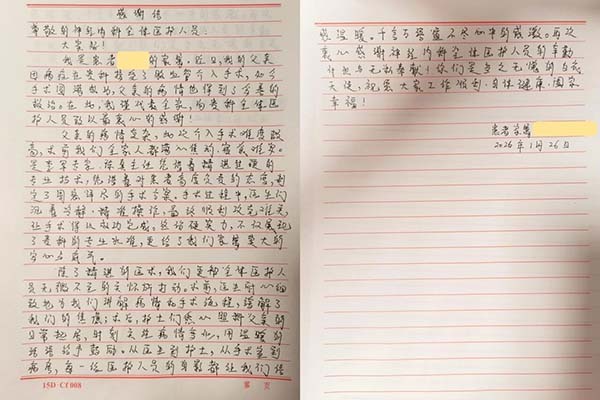 感谢信
尊敬的神经内科全体医护人员:
大家好!
我是患者 的家属,近日,我的父亲
因病在贵科接受了 介入手术,如今
手术圆满成功,父亲的病情也得到了 的
救治。在此,我谨代表全家,向贵科全体医
护人员致以最衷心的感谢!
父亲的病情复杂,此次介入手术难度较
高,术前我们全家人都满心焦虑,寝食难安。
是 主任凭借着精湛过硬的
专业技术,凭借着对患者高度负责的态度,制
定了周密详尽的手术方案。手术过程中,医生们
沉着冷静、精准操作,最终顺利攻克难关,
让手术得以成功完成。这份硬实力,不仅展现
了贵科的专业水准,更给了我们家属莫大的
安心与底气。
除了精湛的医术,我们更被全体医护人
员无微不至的关怀所打动。术前,医生耐心细
致地为我们讲解病情和手术流程,缓解了
我们的焦虑;术后,护士们悉心照料父亲的
日常起居,时刻关注病情变化,用温暖的
话语给予鼓励。从医生到护士,从手术室到
病房,每一位医护人员的身影都让我们倍
15D Cf 008 第 页
感温暖。千言万语道不尽心中的感激。再次
衷心感谢神经内科全体医护人员的辛勤
付出与无私奉献!你们是当之无愧的白衣
天使,祝愿大家工作顺利、身体健康、阖家
幸福!
患者家属
2026年1月26日